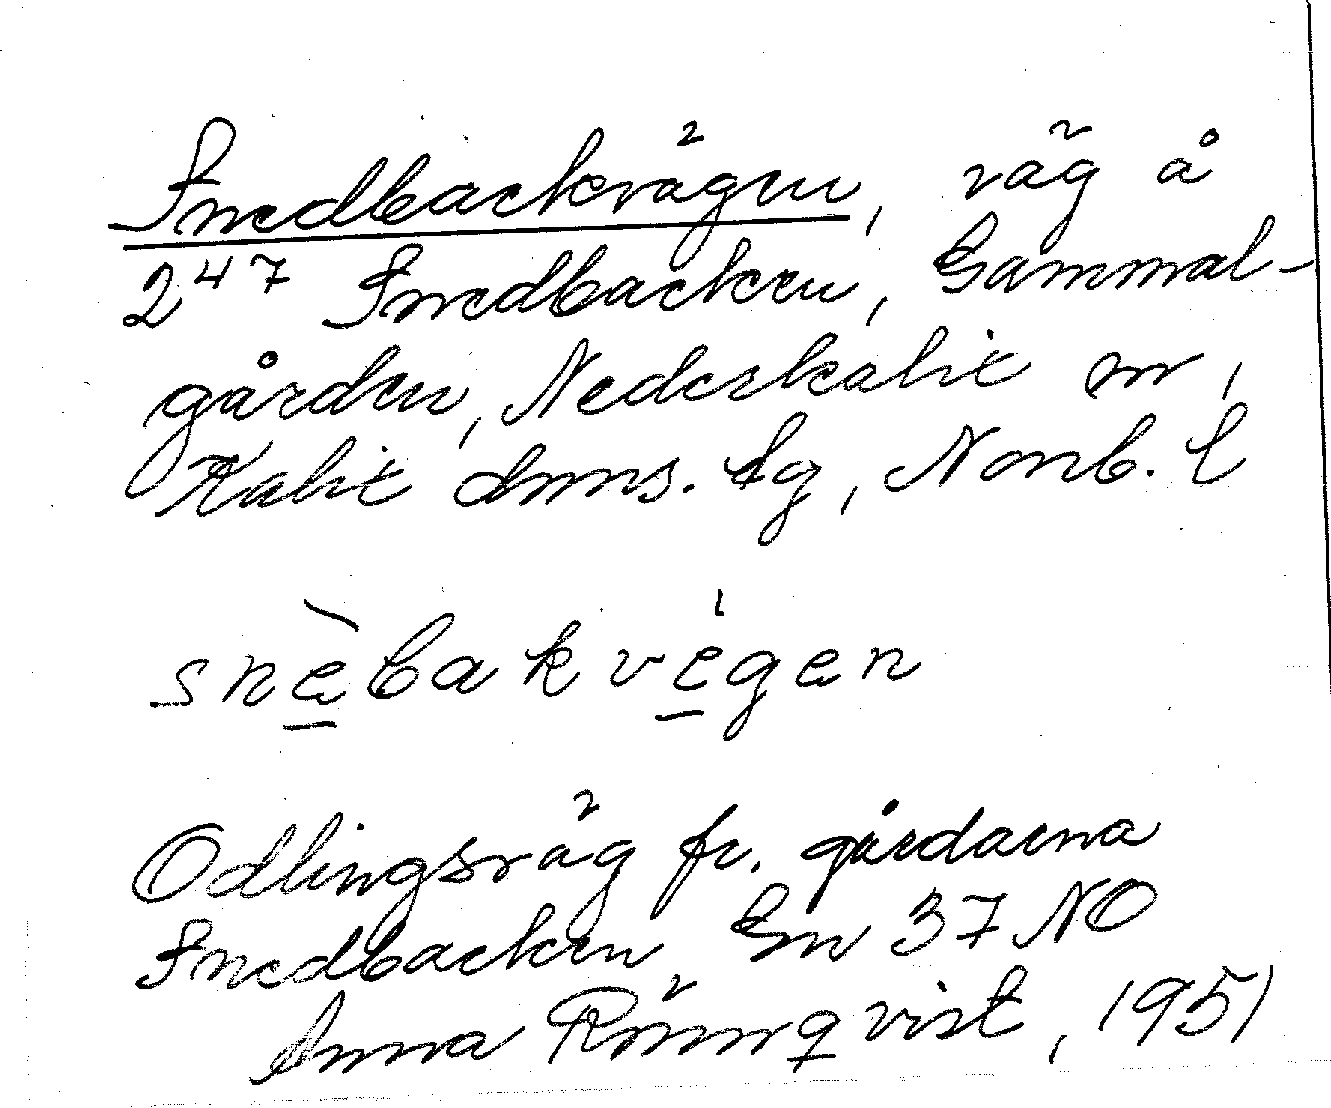 Snedbackvägen, väg å
2⁴⁷ Snedbacken, Gammal-
gården, Nederkalix sn,
Kalix dmns. tg, Norrb. l
snèbakvégen
Odlingsväg fr. gårdarna
Snedbacken. Sn 37 NO
Anna Rönnqvist, 1951